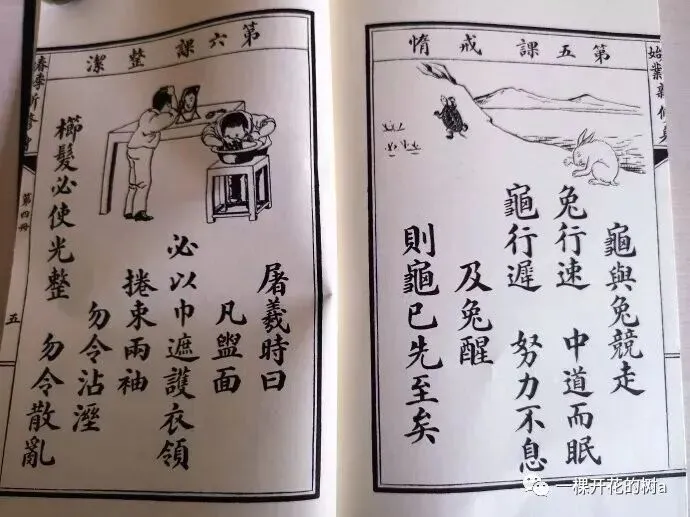 第五課 戒惰
龜與兔競走
兔行速 中道而眠
龜行遲 努力不息
及兔醒
則龜已先至矣
第六課 整潔
屠羲時曰
凡盥面
必以巾遮護衣領
捲束兩袖
勿令沾溼
櫛髮必使光整 勿令散亂
第四冊
五
一棵开花的树a